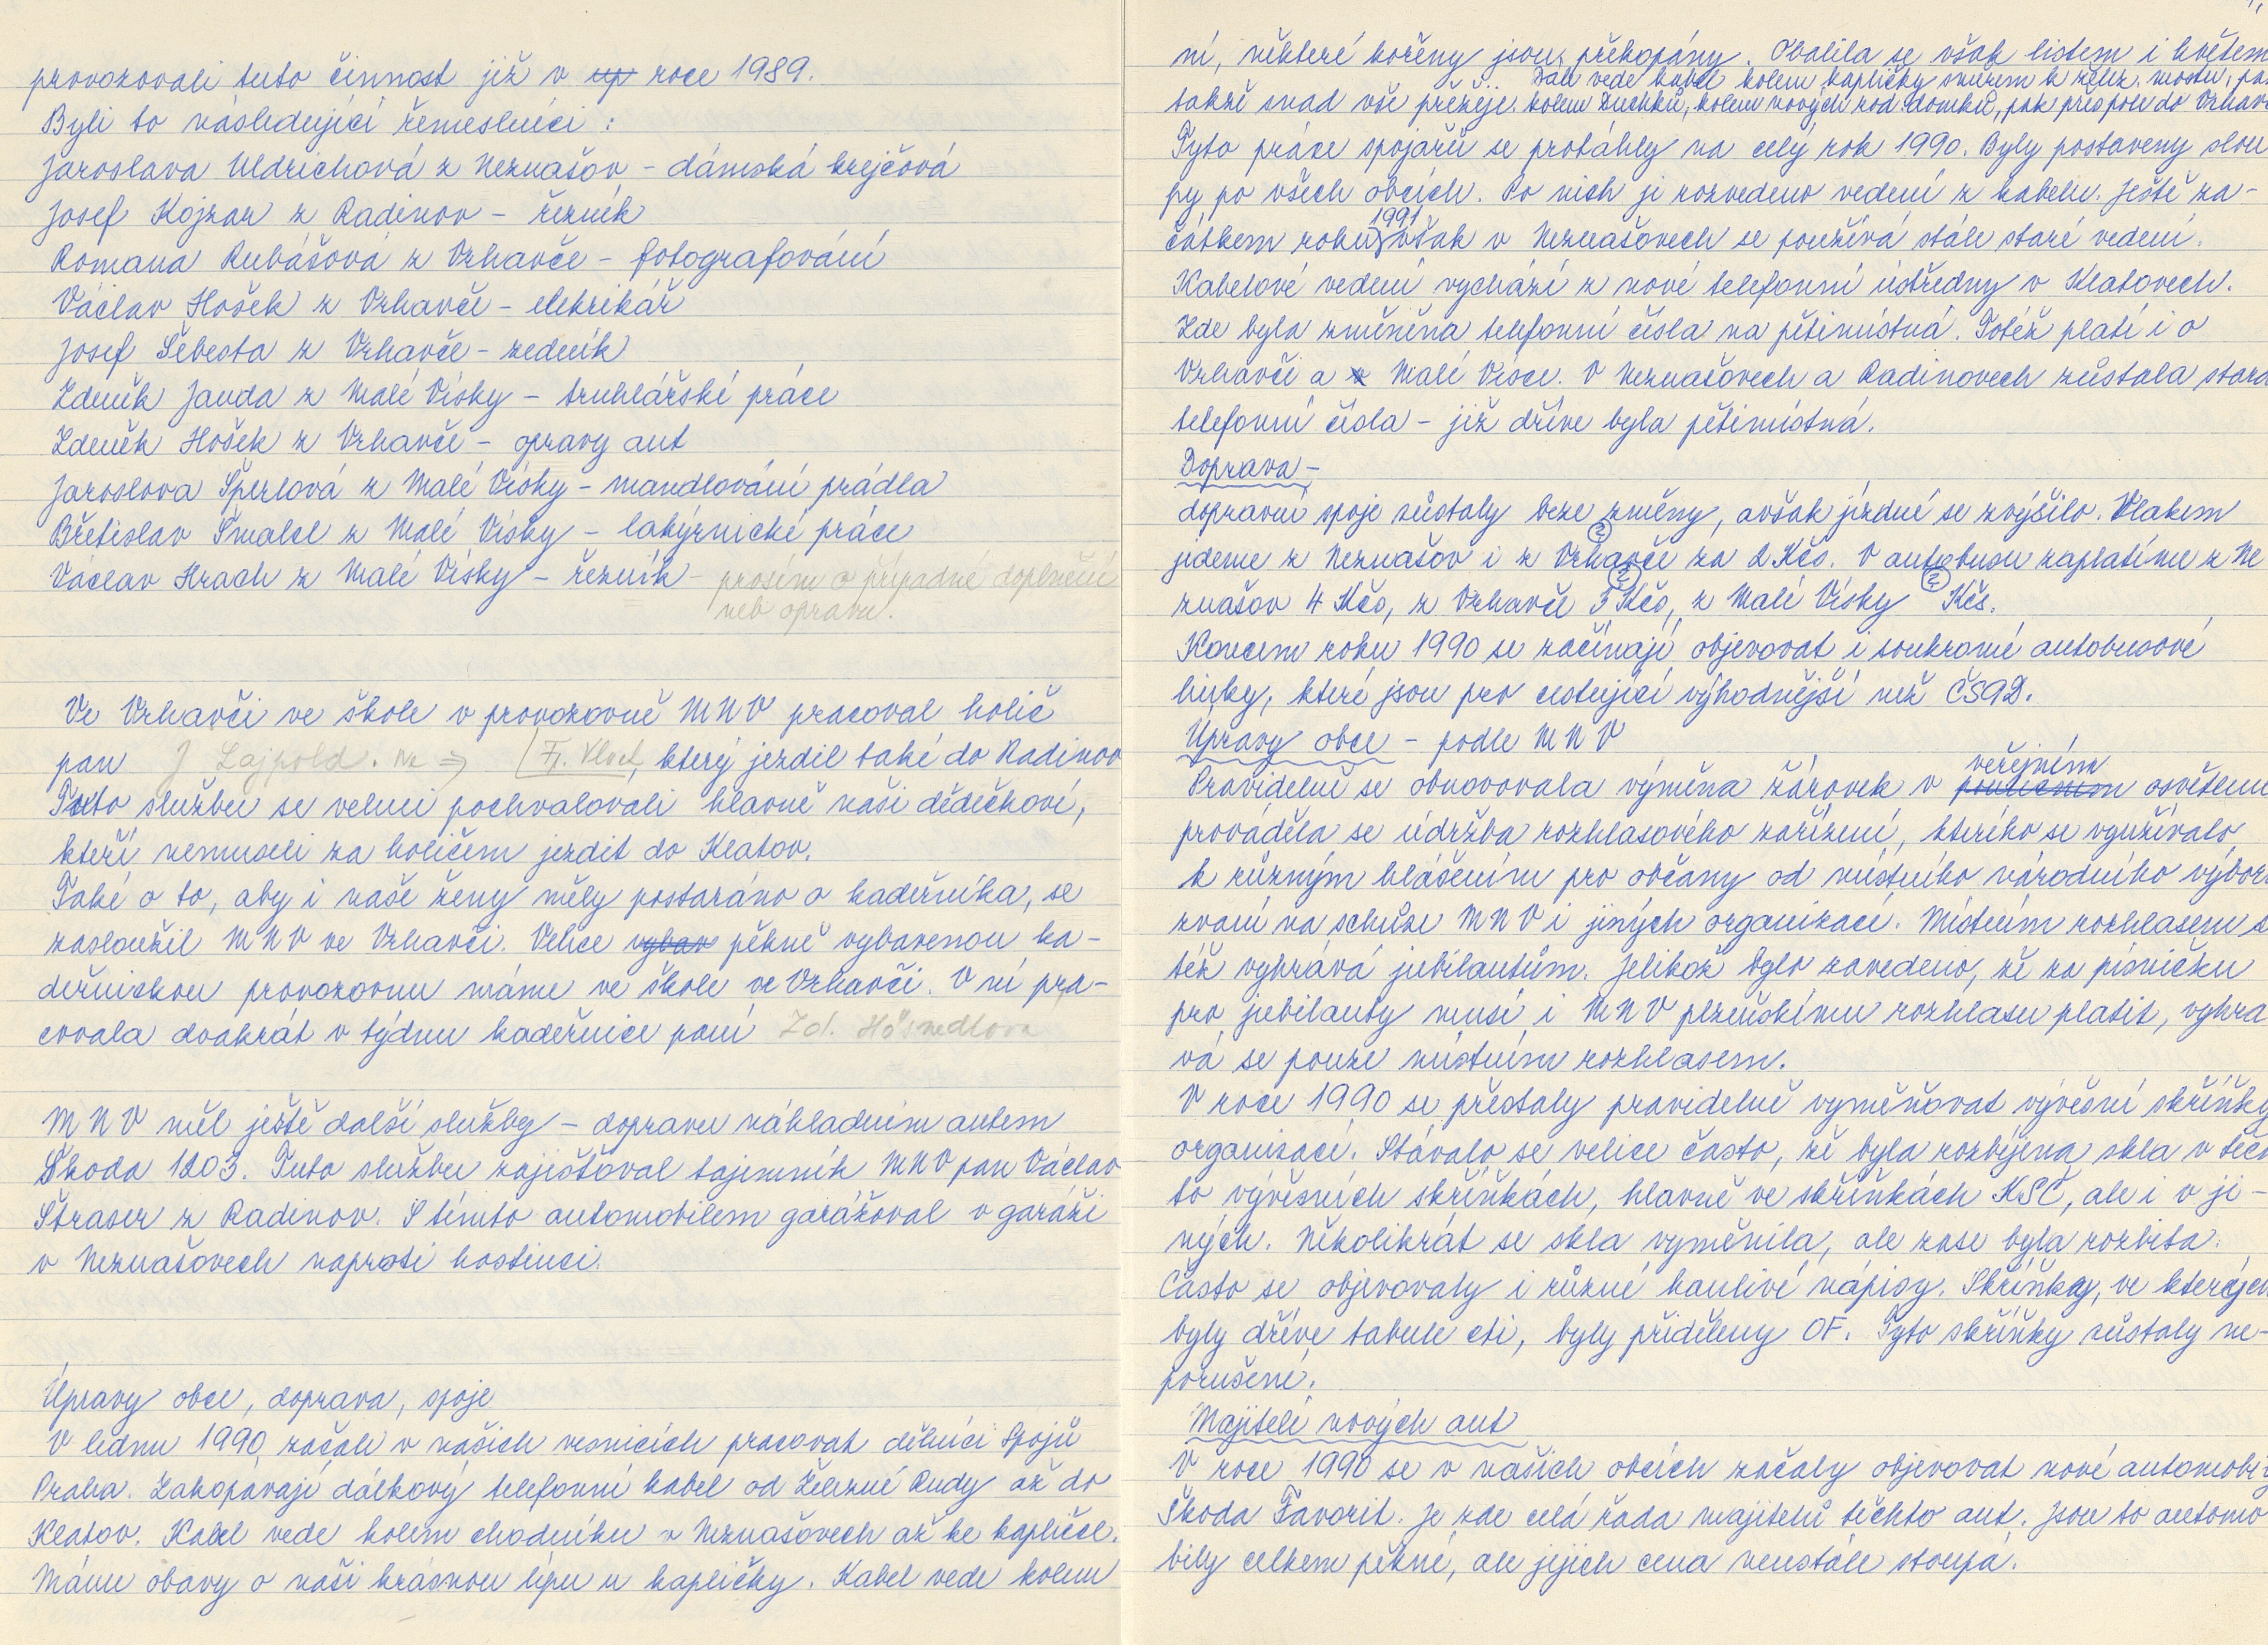 provozovali tuto činnost již v up roce 1989.
Byli to následující řemeslníci :
Jaroslava Uldrichová z Neznašov - dámská krejčová
Josef Kojzar z Radinov - řezník
Romana Rubášová z Vrhavče - fotografování
Václav Hošek z Vrhavče - elektrikář
Josef Šebesta z Vrhavče - zedník
Zdeněk Janda z Malé Vísky - truhlářské práce
Zdeněk Hošek z Vrhavče - opravy aut
Jaroslava Šperlová z Malé Vísky - mandlování prádla
Břetislav Šmalcl z Malé Vísky - lakýrnické práce
Václav Hrach z Malé Vísky - řezník - prosím o případné doplnění
neb opravu.
Ve Vrhavči ve škole v provozovně MNV pracoval holič
pan J Lajpold. ne ⇒ Fr. Vlček, který jezdil také do Radinov
Tuto službu se velmi pochvalovali hlavně naši dědečkové,
kteří nemuseli za holičem jezdit do Klatov.
Také o to, aby i naše ženy měly postaráno o kadeřníka, se
zasloužil MNV ve Vrhavči. Velice vybav pěkně vybavenou ka-
deřnickou provozovnu máme ve škole ve Vrhavči. V ní pra-
covala dvakrát v týdnu kadeřnice paní Zd. Hösnedlova
MNV měl ještě další služby - dopravu nákladním autem
Škoda 1203. Tuto službu zajišťoval tajemník MNV pan Václav
Štraser z Radinov. S tímto automobilem garážoval v garáži
v Neznašovech naproti hostinci.
Úpravy obce, doprava, spoje
V lednu 1990 začali v našich vesnicích pracovat dělníci Spojů
Praha. Zakopávají dálkový telefonní kabel od Železné Rudy až do
Klatov. Kabel vede kolem chodníku v Neznašovech až ke kapličce.
Máme obavy o naši krásnou lípu u kapličky. Kabel vede kolem
ní, některé kořeny jsou překopány. Obalila se však listem i květem
Dále vede kabel kolem kapličky směrem k želez. mostu, pak
takže snad vše přežije. kolem Duchků, kolem nových rod. domků, pak přes pole do Vrhavče
Tyto práce spojařů se protáhly na celý rok 1990. Byly postaveny slou
py po všech obcích. Po nich je rozvedeno vedení z kabelu. Ještě za-
1991
čátkem roku však v Neznašovech se používá stále staré vedení.
Kabelové vedení vychází z nové telefonní ústředny v Klatovech.
Zde byla změněna telefonní čísla na pětimístná. Totéž platí i o
Vrhavči a v Malé Vísce. V Neznašovech a Radinovech zůstala stará
telefonní čísla - již dříve byla pětimístná.
Doprava -
dopravní spoje zůstaly beze změny, avšak jízdné se zvýšilo. Vlakem
jedeme z Neznašov i z Vrhavče za 2 Kčs. V autobusu zaplatíme z Ne
znašov 4 Kčs, z Vrhavče 3 Kčs, z Malé Vísky Kčs.
Koncem roku 1990 se začínají objevovat i soukromé autobusové
linky, které jsou pro cestující výhodnější než ČSAD.
Úpravy obce - podle MNV
veřejném
Pravidelně se obnovovala výměna žárovek v pouličním osvětlení
prováděla se údržba rozhlasového zařízení, kterého se využívalo
k různým hlášením pro občany od místního národního výboru
zvaní na schůze MNV i jiných organizací. Místním rozhlasem s
též vyhrává jubilantům. Jelikož bylo zavedeno, že za písničku
pro jubilanty musí i MNV plzeňskému rozhlasu platit, vyhra
vá se pouze místním rozhlasem.
V roce 1990 se přestaly pravidelně vyměňovat vývěsní skříňky
organizací. Stávalo se velice často, že byla rozbíjena skla v těch
to vývěsních skříňkách, hlavně ve skříňkách KSČ, ale i v ji-
ných. Několikrát se skla vyměnila, ale zase byla rozbita.
Často se objevovaly i různé hanlivé nápisy. Skříňky, ve kterých
byly dříve tabule cti, byly přiděleny OF. Tyto skříňky zůstaly ne-
porušené.
Majitelé nových aut
V roce 1990 se v našich obcích začaly objevovat nové automobily
Škoda Favorit. Je zde celá řada majitelů těchto aut. Jsou to automo
bily celkem pěkné, ale jejich cena neustále stoupá.